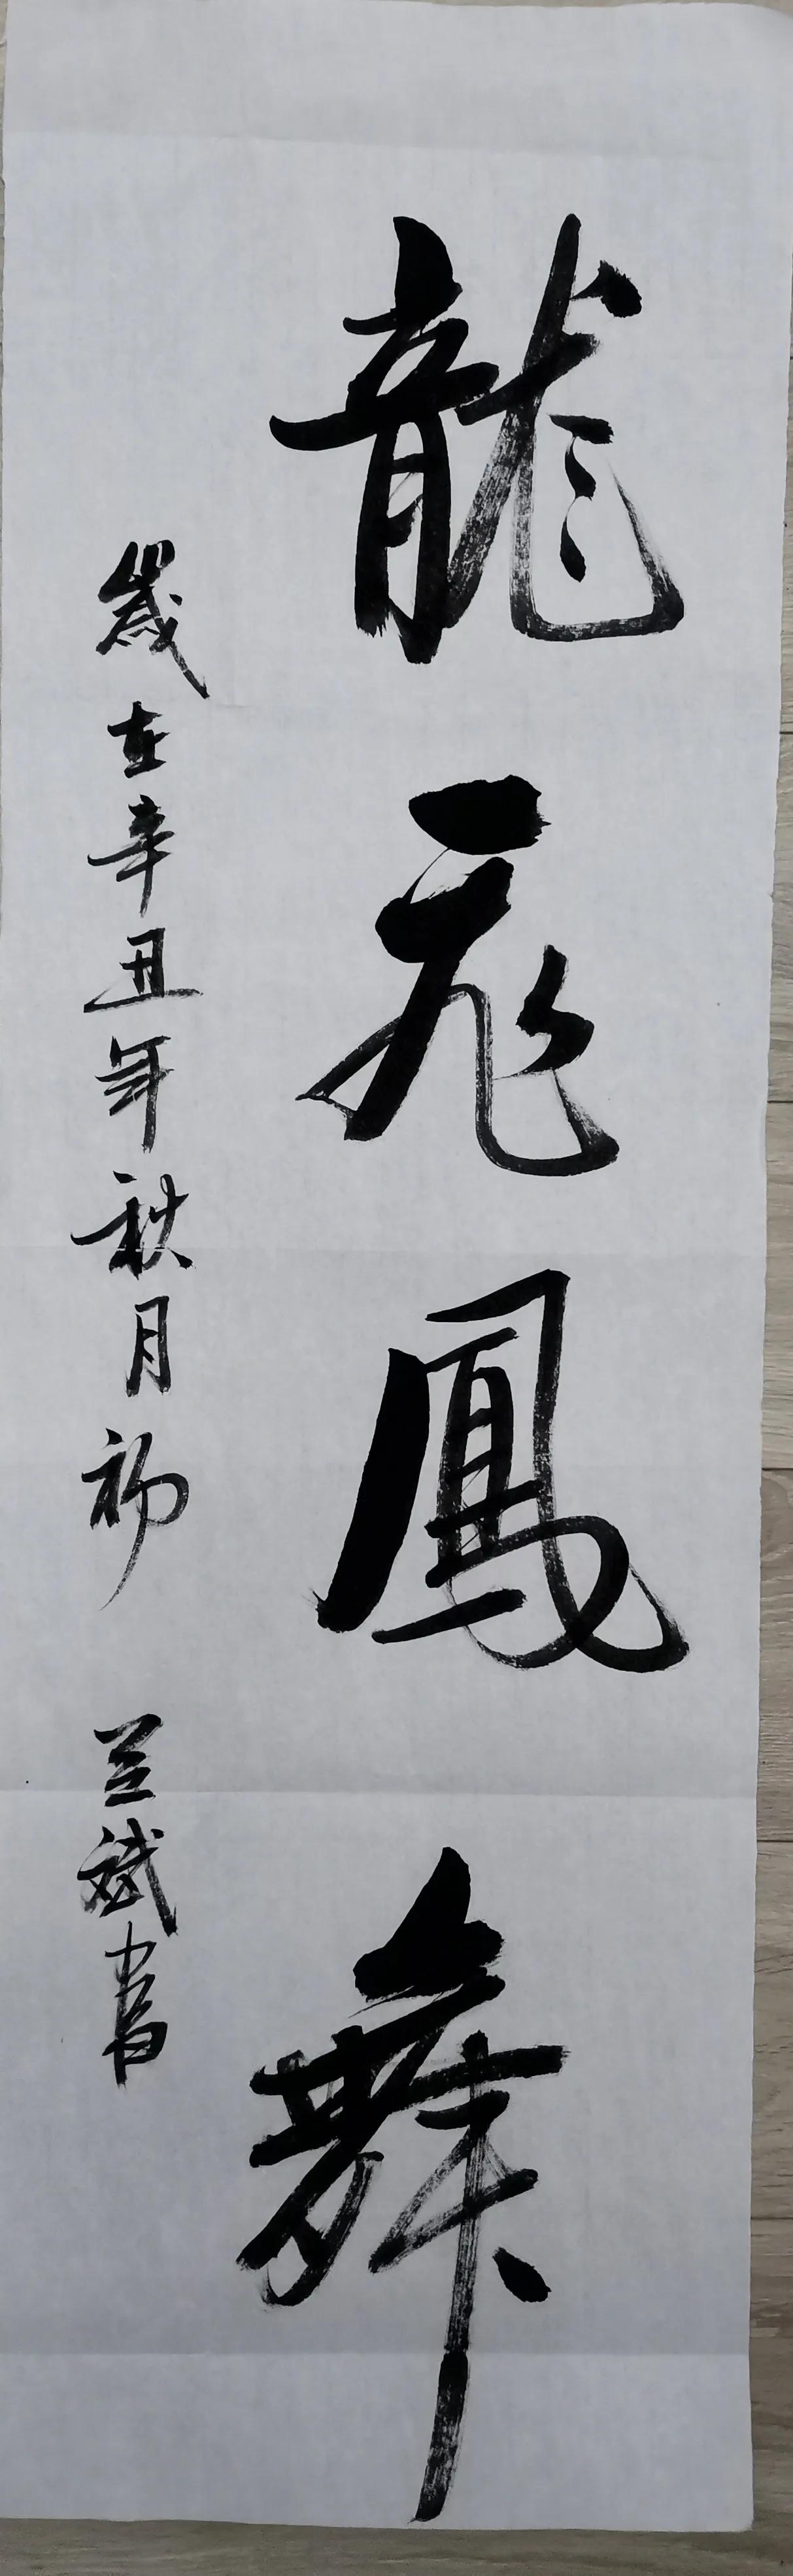 龍飛鳳舞
歲在辛丑年秋月初 兰斌書